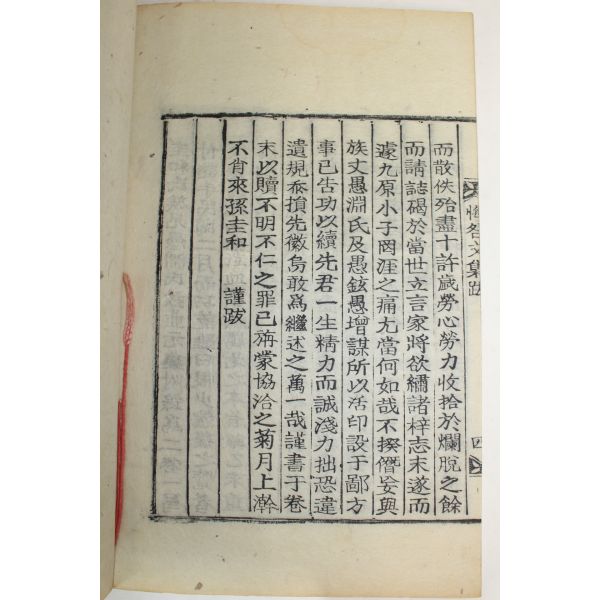 悔咎文集跋
四
而散佚殆盡十許歲勞心勞力收拾於爛脫之餘
而請誌碣於當世立言家將欲繡諸梓志未遂而
遽九原小子罔涯之痛尤當何如哉不揆僭妄與
族丈愚淵氏及愚鉉愚增謀所以活印設于鄙方
事已告功以續先君一生精力而誠淺力拙恐違
遺規忝損先徽烏敢爲繼述之萬一哉謹書于卷
末以贖不明不仁之罪已旃蒙協洽之菊月上澣
不肖來孫圭和 謹跋